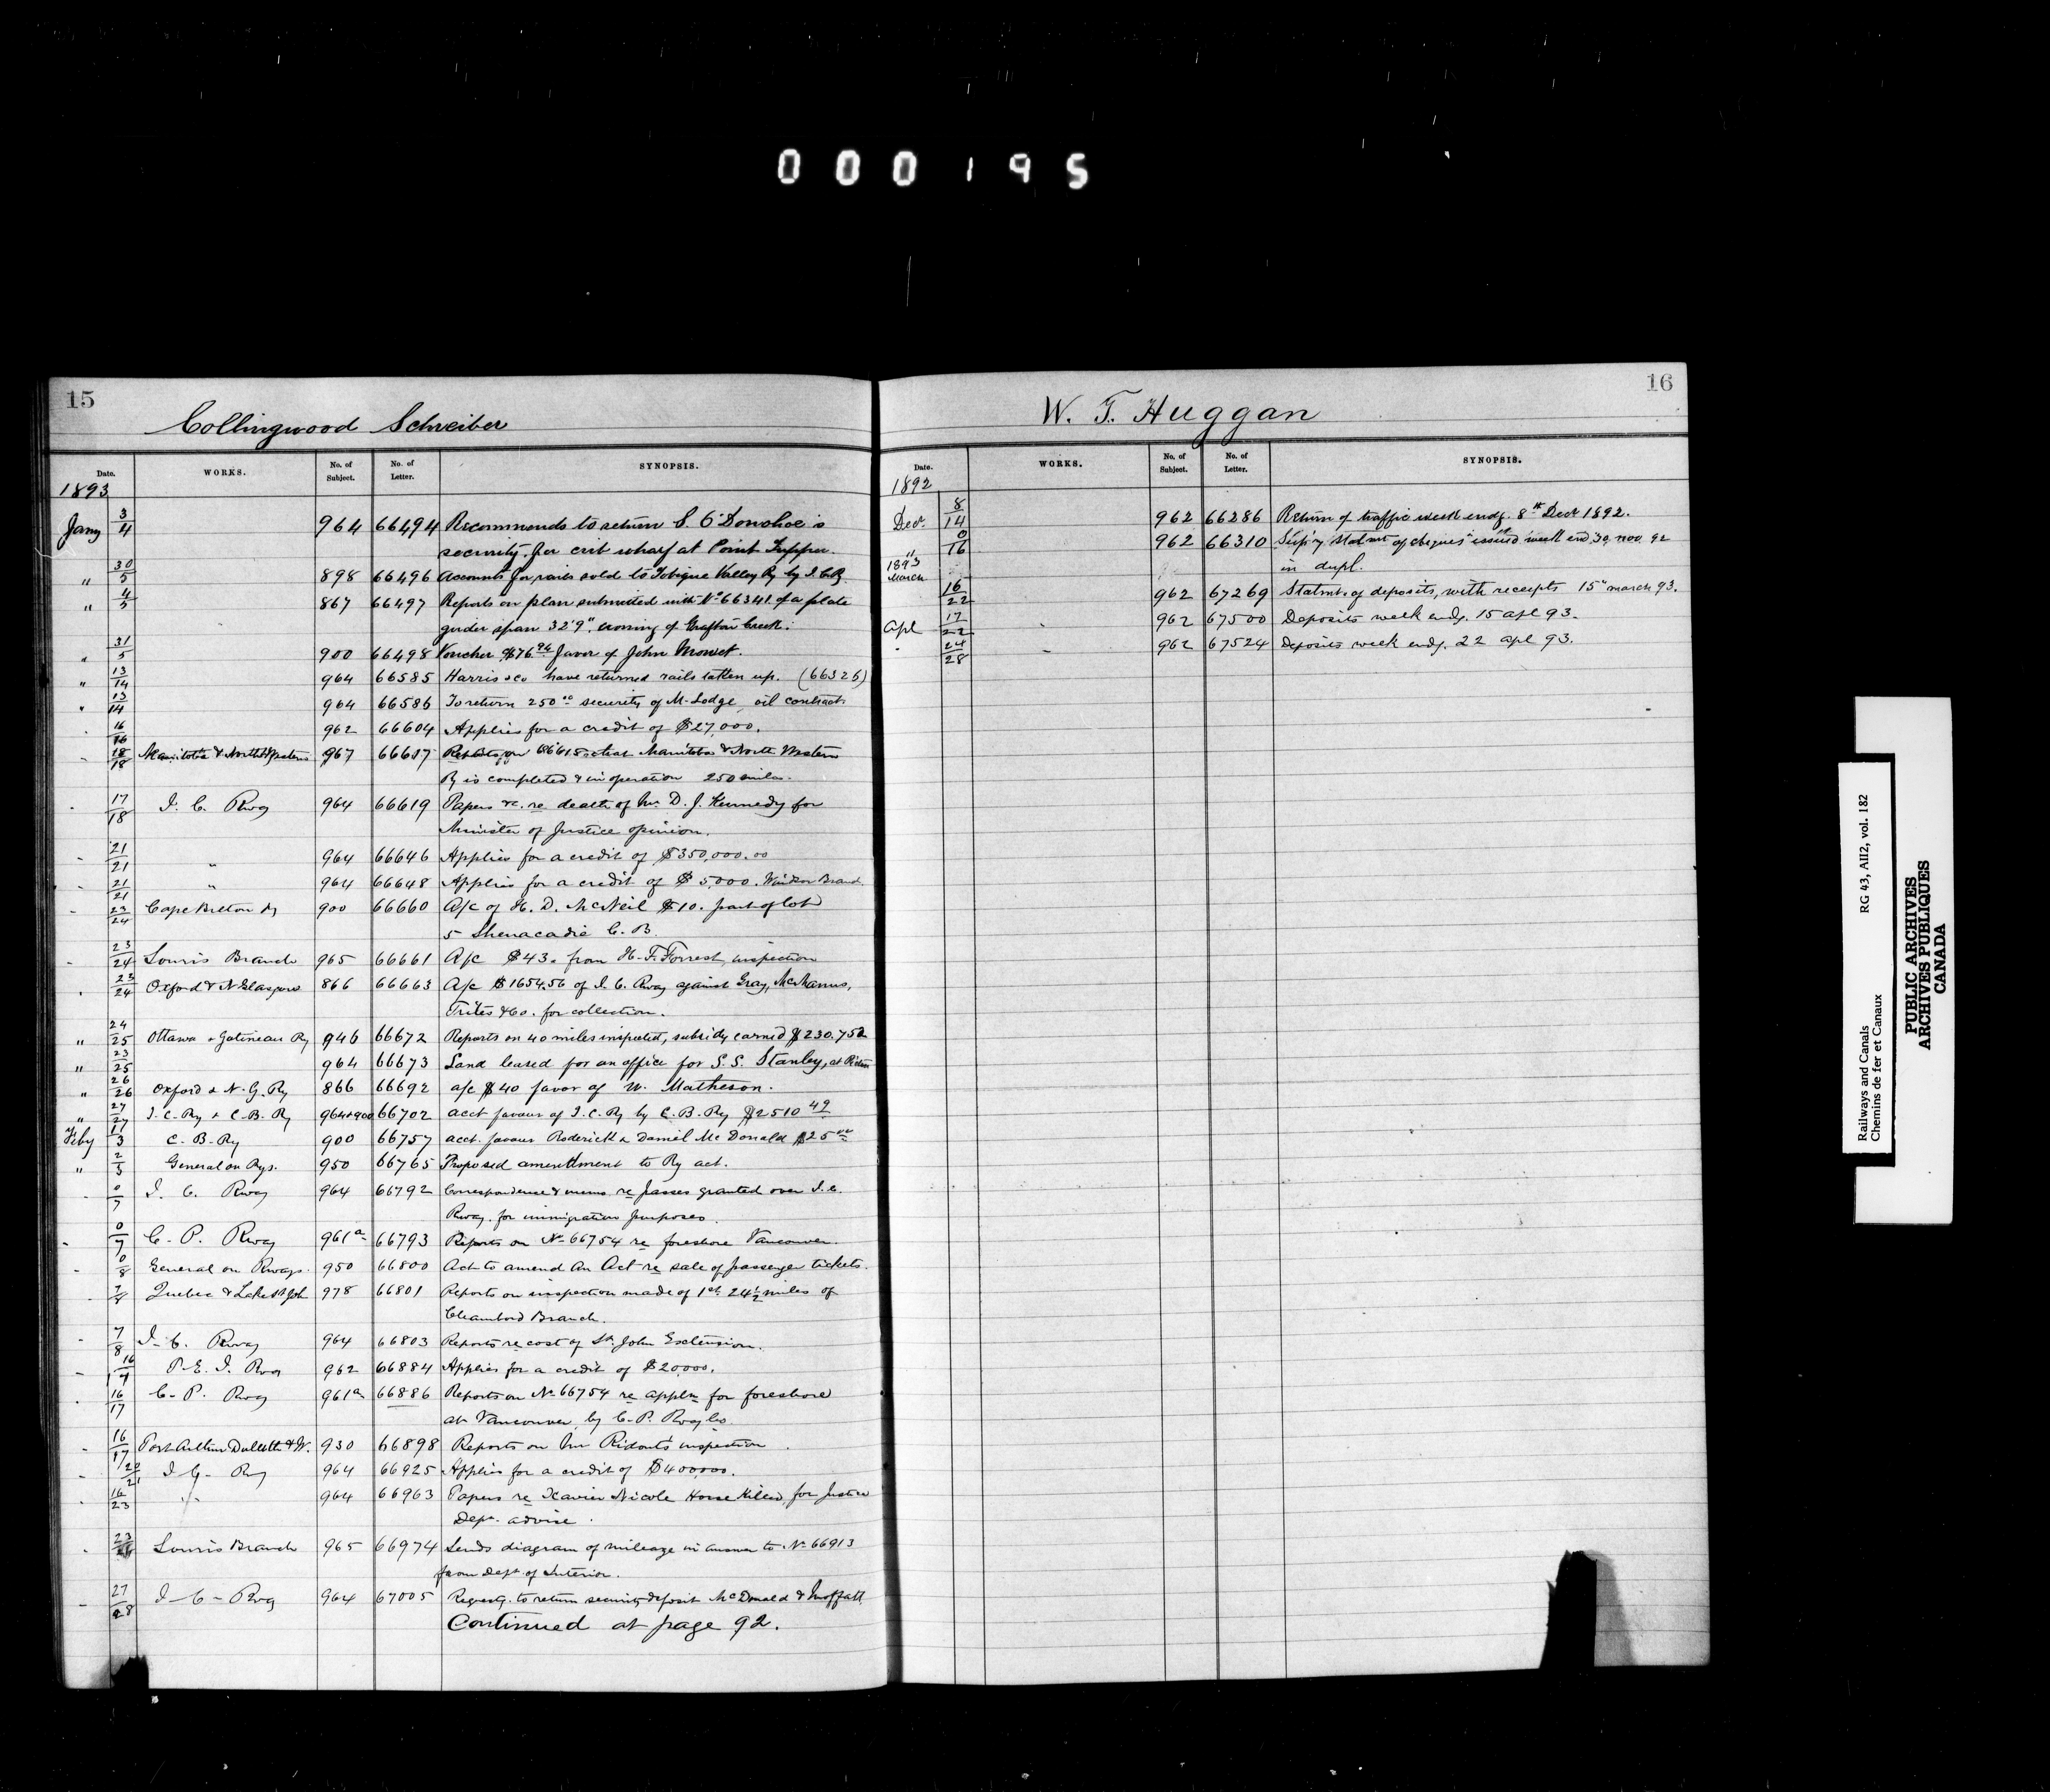 000195
15
Collingwood Schreiber
Date. WORKS. No. of Subject. No. of Letter. SYNOPSIS.
1893
Jany 3/4 964 66494 Recommends to return S. O'Donohoe's
security for crib wharf at Point Tupper.
" 30/5 898 66496 Accounts for rails sold to Tobique Valley Ry by I.C.R.
" 4/5 867 66497 Reports on plan submitted with No 66341 of a plate
girder span 32'9". crossing of Grafton Creek.
" 31/5 900 66498 Voucher $76.94 favor of John Mowat.
" 13/14 964 66585 Harris & Co have returned rails taken up. (66326)
" 13/14 964 66586 To return 250.00 security of M. Lodge, oil contract.
" 16/16 962 66604 Applies for a credit of $27,000.
" 18/18 Manitoba & North Western 967 66617 Reports on 66615 that Manitoba & North Western
Ry is completed & in operation 250 miles.
" 17/18 I. C. Rway 964 66619 Papers &c. re death of Mr. D. J. Kennedy for
Minister of Justice opinion.
" 21/21 " 964 66646 Applies for a credit of $350,000.00
" 21/21 " 964 66648 Applies for a credit of $5,000. Windsor Branch
" 23/24 Cape Breton Ry 900 66660 A/c of H. D. McNeil $10. part of lot
5 Shenacadie C. B.
" 23/24 Souris Branch 965 66661 A/c $43. from H. F. Forrest, inspection
" 23/24 Oxford & N Glasgow 866 66663 A/c $1654.56 of I. C. Rway against Gray, McManus,
Trites & Co. for collection.
" 24/25 Ottawa & Gatineau Ry 946 66672 Reports on 40 miles inspected, subsidy earned $230,752
" 23/25 964 66673 Land leased for an office for S.S. Stanley, at Pictou
" 26/26 Oxford & N. G. Ry 866 66692 a/c $40 favor of W. Matheson.
" 27/27 I. C. Ry & C. B. Ry 964+900 66702 acct favour of I. C. Ry by C. B. Ry $2510 49
Feby 1/3 C. B. Ry 900 66757 acct. favour Roderick & Daniel McDonald $25 00
" 2/3 General on Rys. 950 66765 Proposed amendment to Ry act.
" 0/7 I. C. Rway 964 66792 Correspondence & memo re passes granted over I. C.
Rway. for immigration purposes.
" 0/7 C. P. Rway 961a 66793 Reports on No 66754 re foreshore Vancouver.
" 0/8 General on Rways. 950 66800 Act to amend An Act re sale of passenger tickets.
" 7/8 Quebec & Lake St Joh 978 66801 Reports on inspection made of 1st 24½ miles of
Chambord Branch.
" 7/8 I. C. Rway 964 66803 Reports re cost of St. John Extension.
" 16/17 P. E. I. Rway 962 66884 Applies for a credit of $20,000.
" 16/17 C. P. Rway 961a 66886 Reports on No 66754 re appln for foreshore
at Vancouver by C. P. Rway Co.
" 16/17 Port Arthur Duluth & W. 930 66898 Reports on Mr Ridout's inspection
" 20/21 I. C. Ry 964 66925 Applies for a credit of $400,000.
" 16/23 " 964 66963 Papers re Xavier Nicole Horse Killed, for Justice
Dept. advise.
" 23 Souris Branch 965 66974 Sends diagram of mileage in answer to No 66913
from Dept of Interior.
" 27/28 I. C. Rway 964 67005 Requestg. to return security deposit McDonald & Moffatt
Continued at page 92.
16
W. T. Huggan
Date. WORKS. No. of Subject. No. of Letter. SYNOPSIS.
1892
Decr. 8/14 962 66286 Return of traffic week endg. 8th Decr 1892.
" 0/16 962 66310 Sup'y statmt of cheques issued week end 30 nov. 92
in dupl.
1893
March 16/22 962 67269 Statmt. of deposits, with receipts 15" march 93.
Apl 17/22 962 67500 Deposits week endg. 15 apl 93.
" 24/28 962 67524 Deposits week endg. 22 apl 93.
Railways and Canals RG 43, AII2, vol. 182
Chemins de fer et Canaux
PUBLIC ARCHIVES
ARCHIVES PUBLIQUES
CANADA